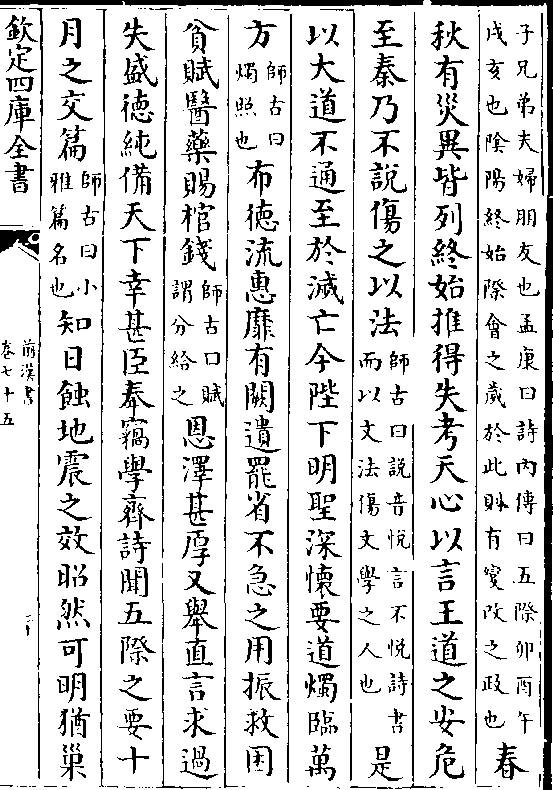 子兄弟夫婦朋友也孟康曰詩內傳曰五際卯酉午
戌亥也陰陽終始際會之歲於此則有變改之政也
春
秋有災異皆列終始推得失考天心以言王道之安危
至秦乃不說傷之以法
師古曰說音悅言不悅詩書
而以文法傷文學之人也
是
以大道不通至於滅亡今陛下明聖深懷要道燭臨萬
方
師古曰
燭照也
布德流惠靡有闕遺罷省不急之用振救困
貧賦醫藥賜棺錢
師古曰賦
謂分給之
恩澤甚厚又舉直言求過
失盛德純備天下幸甚臣奉竊學齊詩聞五際之要十
月之交篇
師古曰小
雅篇名也
知日蝕地震之效昭然可明猶巢
欽定四庫全書
前漢書
卷七十五